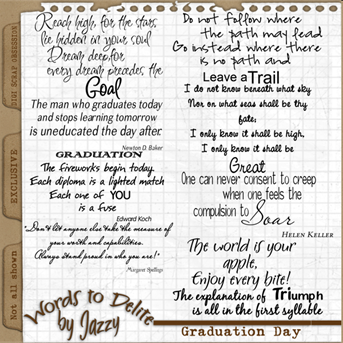 Reach high, for the stars
lie hidden in your soul
Dream deep, for
every dream precedes the
Goal
The man who graduates today
and stops learning tomorrow
is uneducated the day after.
Newton D. Baker
GRADUATION
The fireworks begin today.
Each diploma is a lighted match
Each one of YOU
is a fuse
Edward Koch
"Don't let anyone else take the measure of
your worth and capabilities.
Always stand proud in who you are!"
Margaret Spellings
Do not follow where
the path may lead
Go instead where there
is no path and
Leave a Trail
I do not know beneath what sky
Nor on what seas shall be thy
fate;
I only know it shall be high,
I only know it shall be
Great
One can never consent to creep
when one feels the
compulsion to Soar
HELEN KELLER
The world is your
apple,
Enjoy every bite!
The explanation of Triumph
is all in the first syllable
Graduation Day
Words to Delite
by Jazzy
DIGI SCRAP OBSESSION
EXCLUSIVE
Not all shown